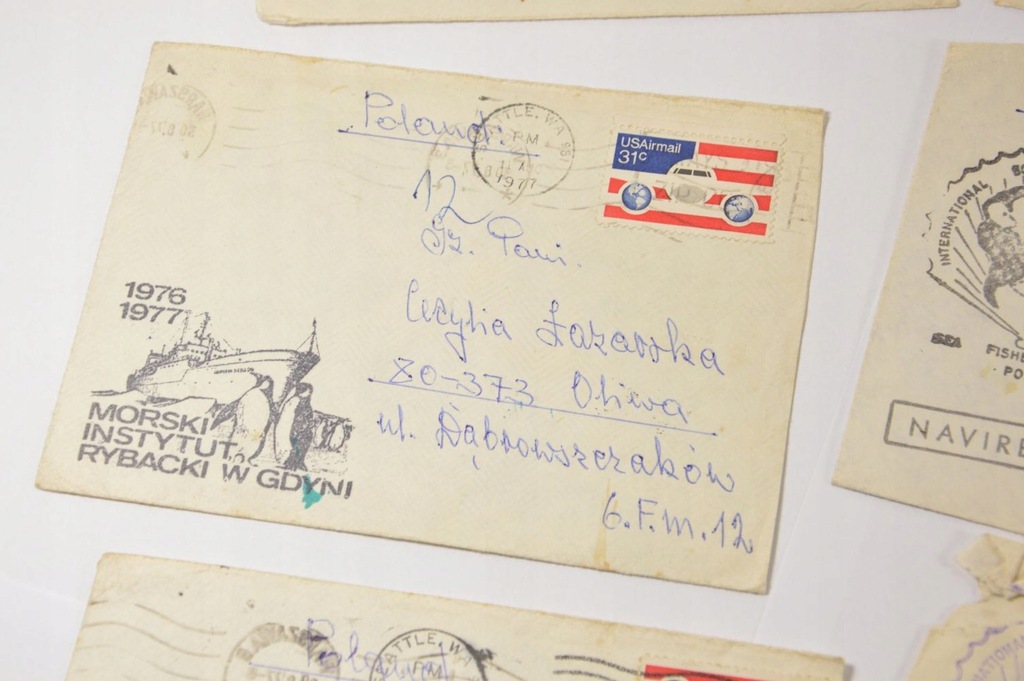 Poland.
SEATTLE, WA
PM
1977
USAirmail
31c
12
Sz. Pani.
Cezylia Łazarska
80-373 Oliwa
ul. Dąbrowszczaków
6.F.m.12
1976
1977
MORSKI
INSTYTUT
RYBACKI W GDYNI
INTERNATIONAL
SEA
FISHE
PO
NAVIRE
Poland
ATTLE, WA
PM